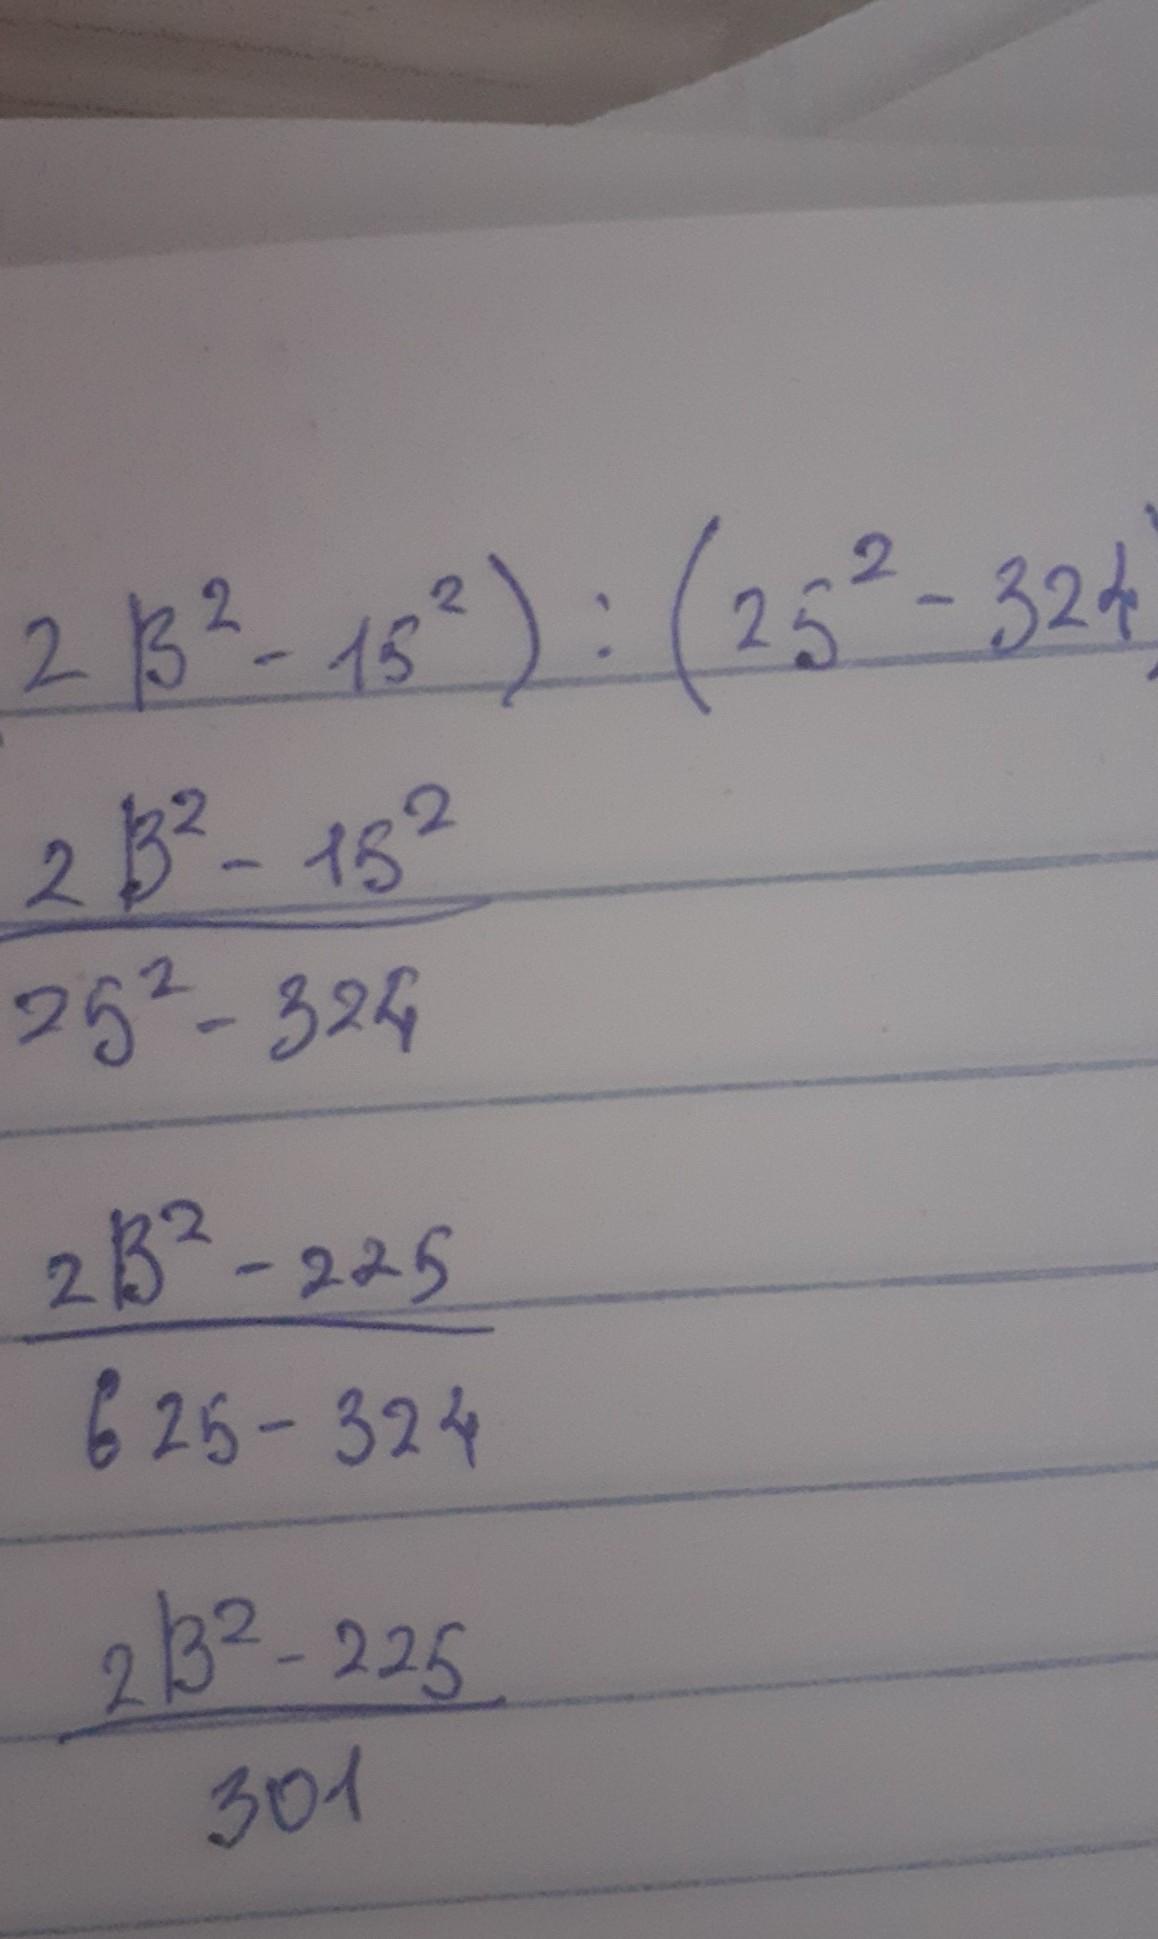 2 β² - 15²) : (25² - 324)
2 β² - 15²
25² - 324
2β² - 225
625 - 324
2β² - 225
301